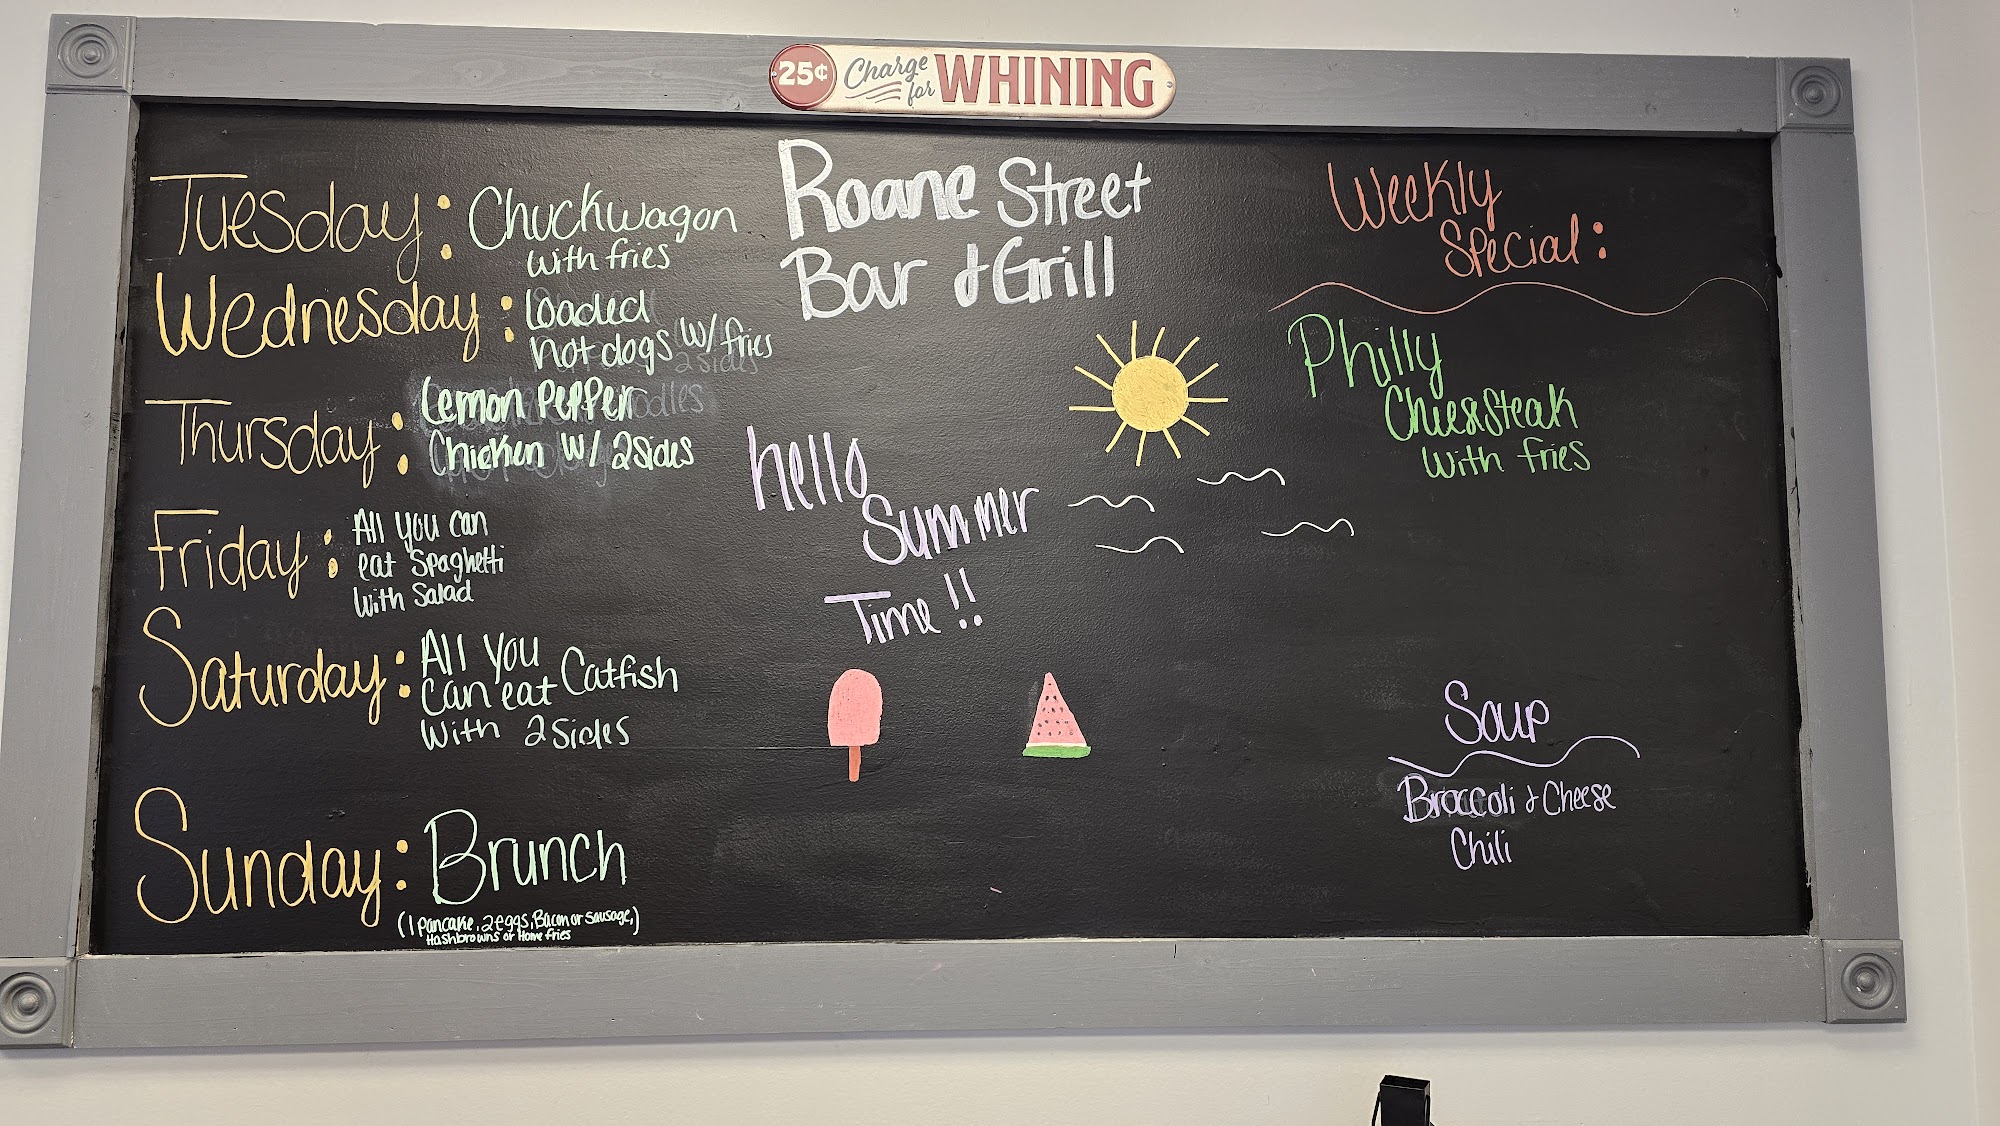 25¢ Charge for WHINING
Roane Street
Bar & Grill
Tuesday: Chuckwagon
with fries
Wednesday: Loaded
hotdogs w/ fries
Thursday: Lemon Pepper
Chicken w/ 2 sides
Friday: All you can
eat Spaghetti
with Salad
Saturday: All you
can eat Catfish
with 2 sides
Sunday: Brunch
(1 pancake, 2 eggs, Bacon or Sausage,)
Hashbrowns or Home fries
hello
Summer
Time!!
Weekly
Special:
Philly
Cheesesteak
with fries
Soup
Broccoli & Cheese
Chili